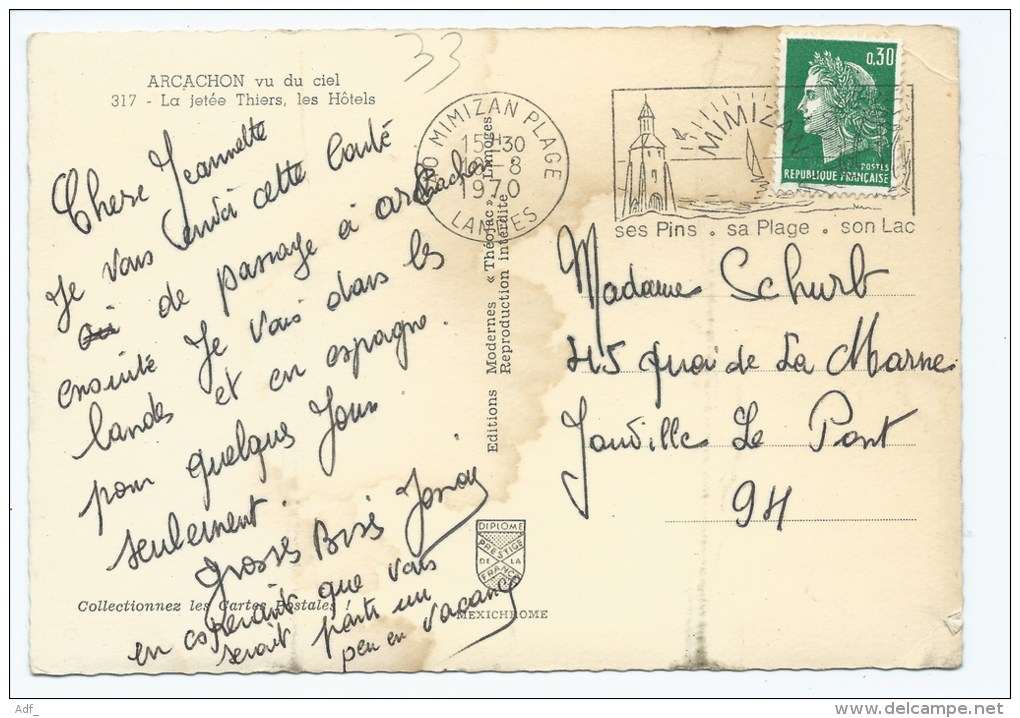 33
ARCACHON vu du ciel
317 - La jetée Thiers, les Hôtels
Chere Jeannette
Je vous envoi cette carte
de passage à arcachon
ensuite Je vais dans les
landes et en espagne.
pour quelque Jour
seulement.
grosses Bises
en esperant que vous
serait parti un
peu en vacances
Collectionnez les Cartes Postales !
Editions Modernes « Théojac », Limoges
Reproduction interdite
DIPLOME
PRESTIGE
DE LA
FRANCE
MEXICHROME
40 MIMIZAN PLAGE
15H30
1970
LANDES
MIMIZAN
ses Pins . sa Plage . son Lac
0,30
POSTES
REPUBLIQUE FRANÇAISE
Madame Schurb
45 quai de La Marne
Joinville Le Pont
94
Adf_
www.delcampe.net